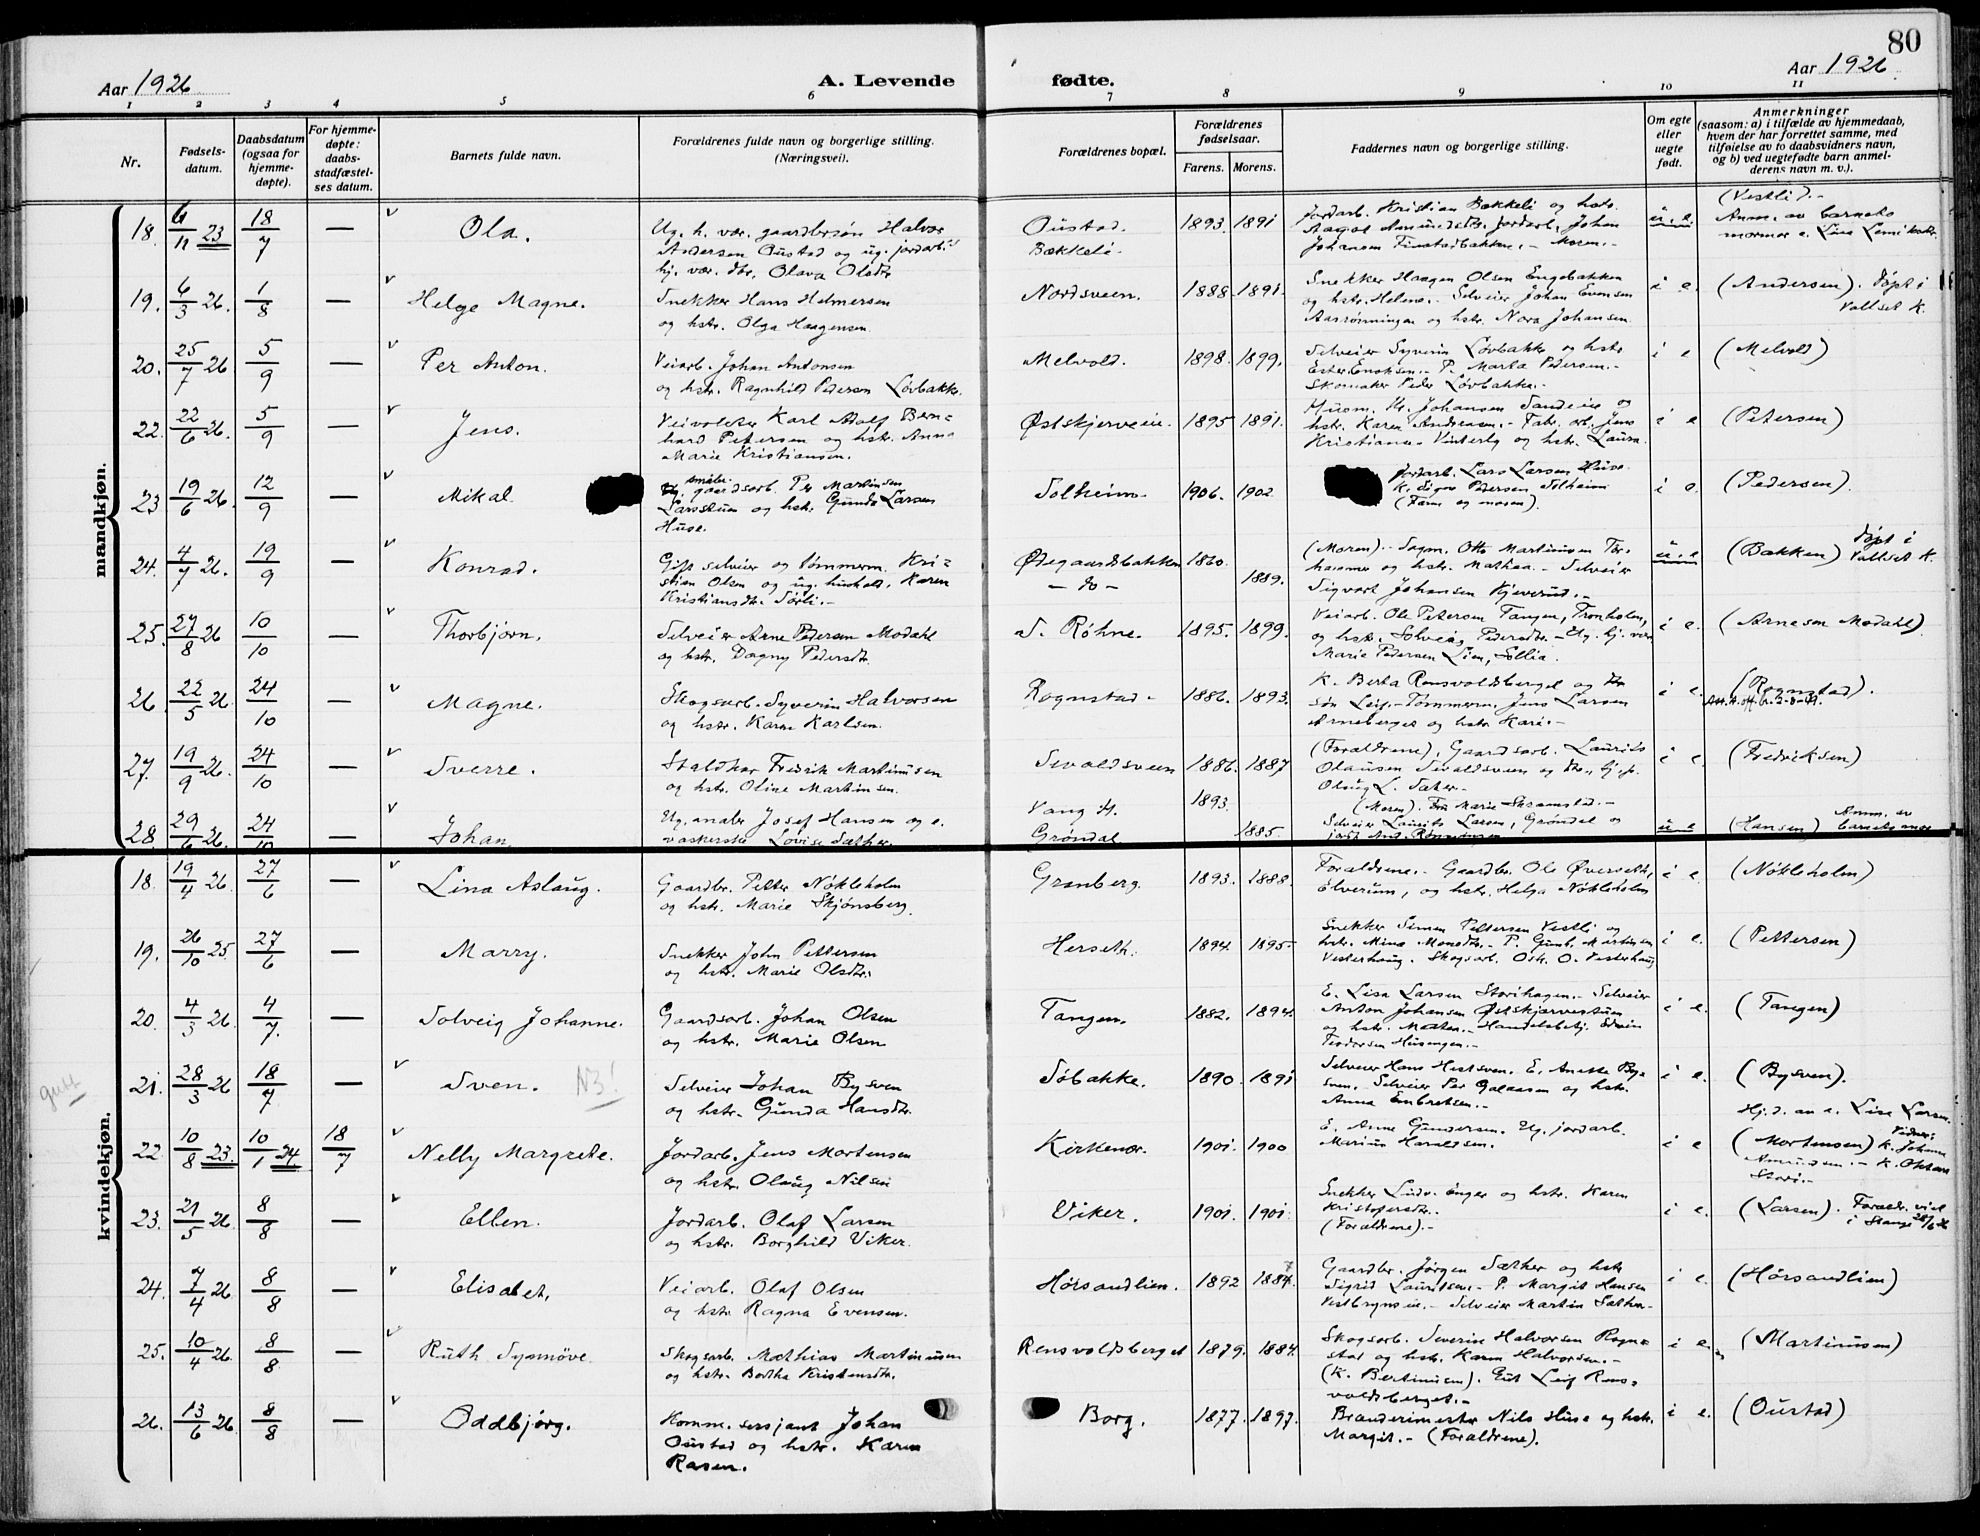 80
Aar 1926
A. Levende fødte.
Aar 1926
1 2 3 4 5 6 7 8 9 10 11
Nr.
Fødsels-
datum.
Daabsdatum
(ogsaa for
hjemme-
døpte).
For hjemme-
døpte:
daabs-
stadfæstel-
ses datum.
Barnets fulde navn.
Forældrenes fulde navn og borgerlige stilling.
(Næringsvei).
Forældrenes bopæl.
Forældrenes
fødselsaar.
Farens. Morens.
Faddernes navn og borgerlige stilling.
Om egte
eller
uegte
født.
Anmerkninger
(saasom: a) i tilfælde av hjemmedaab,
hvem der har forrettet samme, med
tilføielse av to daabsvidners navn,
og b) ved uegtefødte barn anmel-
derens navn m. v.).
mandkjøn.
18. 6/11 23 18/7 — Ola.
Ug. h. vær. gaardbrsøn Halvor
Andersen Oustad og ug. jordarb.
hj. vær. dtr. Olava Olsdtr.
Oustad. 1893. 1891
Bækkeli.
Jordarb. Kristian Bækkeli og hstr.
Aagot Amundsdtr. Jordarb. Johan
Johansen Finstadbakken. – Moren. –
u. e.
(Vestli). –
Anm. av barnets
mormor e. Lina
19. 6/3 26. 1/8 — Helge Magne.
Snekker Hans Helmersen
og hstr. Olga Haagensen.
Nordsveen. 1888. 1891.
Snekker Haagen Olsen Engebakken
og hstr. Helene. – Selveier Johan Evensen
Aasrønningen og hstr. Nora Johansen.
i e. (Andersen). Døpt i
Vallset K.
20. 25/7 26 5/9 — Per Anton.
Veiarb. Johan Antonsen
og hstr. Ragnhild Pedersen Løvbakke.
Melvold. 1898. 1899.
Selveier Syverin Løvbakke og hstr.
Ester Enoksen. – P. Marta Pedersen. –
Skomaker Peder Løvbakke. –
i e (Melvold)
22. 22/6 26. 5/9 — Jens.
Veivokter Karl Adolf Bern=
hard Petersen og hstr. Anna
Marie Kristiansen.
Østskjerveie. 1895 1891.
Husm. Kr. Johansen Sandeie og
hstr. Karen Andreasen. – Fabr. arb. Jens
Kristiansen Vinterly og hstr. Laura.
i e (Petersen)
23 19/6 26. 12/9 — Mikal.
smaabr.
gaardsarb. Per Martinsen
Larsstuen og hstr. Gunda Larsen
Huse.
Solheim. 1906. 1902
Jordarb. Lars Larsen Huse.
K. Signe Pedersen Solheim
(Farm og moren).
i e. (Pedersen).
24. 4/7 26. 19/9 — Konrad.
Gift selveier og tømmerm. Kri=
stian Olsen og ug. hushold. Karen
Kristiansdtr. Sørli. –
Ødegaardsbakken 1860.
— do — 1889.
(Moren). – Sagm. Otto Martinusen Tor=
hammer og hstr. Mathea. – Selveier
Sigvart Johansen Kjeverud. –
u. e (Bakken) Døpt i
Vallset K.
25. 27/8 26 10/10 — Thorbjørn.
Selveier Arne Pedersen Modahl
og hstr. Dagny Pedersdtr.
S. Røhne. 1895. 1899.
Veiarb. Ole Petersen Tangen, Tronholm,
og hstr. Solveig Pedersdtr. – Ug. hj. vær
Marie Pedersen Lien, Sollia.
i e. (Arnesen Modahl).
26. 22/5 26. 24/10 — Magne.
Skogsarb. Syverin Halvorsen
og hstr. Karen Karlsen.
Rognstad – 1886. 1893.
K. Berta Rensvoldsberget og
søn Leif. – Tømmerm. Jens Larsen
Arneberget og hstr. Kari. –
i e. (Rognstad).
27. 19/9 26. 24/10 — Sverre.
Staldkar Fredrik Martinusen
og hstr. Oline Martinsen.
Sevaldsveen 1886. 1887
(Forældrene), Gaardsarb. Laurits
Olausen Sevaldsveen og
Olaug L. Sæter.
i e. (Fredriksen)
28. 29/6 26. 24/10 — Johan
Ug. maler Josef Hansen og e.
vaskerske Lovise Sæther.
Vang H. 1893.
Grøndal. 1885.
(Moren). Fru Marie Skramstad. –
Selveier Laurits Larsen, Grøndal og
u. e (Hansen) Anm. av
barnets mor
kvindekjøn.
18. 19/4 26. 27/6 — Lina Aslaug.
Gaardbr. Petter Nøkleholm
og hstr. Marie Skjønsberg.
Granberg. 1893. 1888.
Forældrene. – Gaardbr. Ole Øverseth,
Elverum, og hstr. Helga Nøkleholm
i e. (Nøkleholm)
19. 26/10 25. 27/6 — Marry.
Snekker John Pettersen
og hstr. Marie Olsdtr.
Herseth. 1894. 1895.
Snekker Simen Pettersen Vestli og
hstr. Mina Monsdtr. – P. Gunh. Martinsen
Vesterhaug. Skogsarb. Osk. O. Vesterhaug
i e. (Pettersen)
20. 4/3 26. 4/7. — Solveig Johanne.
Gaardsarb. Johan Olsen
og hstr. Marie Olsen
Tangen. 1882. 1894.
E. Lisa Larsen Storihagen. – Selveier
Anton Johansen Østskjærvestuen
og hstr. Marten. – Handelsbetj. Edvin
Teodorsen Husengen. –
i e. (Tangen)
gutt
21. 28/3 26 18/7 — Sven. N3!
Selveier Johan Bysven
og hstr. Gunda Hansdtr.
Søbakke. 1890. 1891
Selveier Hans Hestsven. E. Anette By=
sven. Selveier Per Galaasen og hstr.
Anna Embretsen. –
i e. (Bysven).
22 10/8 23. 10/1 24 18/7 Nelly Margrete.
Jordarb. Jens Mortensen
og hstr. Olaug Nilsen
Kirkenær. 1901. 1900
E. Anne Gundersen. Ug. jordarb.
Marius Haraldsen.
i e
Hj. d. av e. Lisa Larsen.
(Mortensen) Vidner:
K. Johanne
Amundsen. – K. Oktava
23. 21/5 26. 8/8 — Ellen.
Jordarb. Olaf Larsen
og hstr. Borghild Viker.
Viker. 1901. 1901.
Snekker Ludv. Enger og hstr. Karen
Kristofersdtr.
(Forældrene). –
i e. (Larsen). Forældr. viet
i Stange
24. 7/4 26 8/8 — Elisabet.
Veiarb. Olaf Olsen
og hstr. Ragna Evensen.
Hørsandlien. 1892 1884.
Gaardbr. Jørgen Sæther og hstr.
Sigrid Lauritsen. – P. Margit Hansen
Vestbrynsveen. – Selveier Martin Sæther –
i e. (Hørsandlien)
25. 10/4 26. 8/8 — Ruth Synnøve.
Skogsarb. Mathias Martinusen
og hstr. Bertha Kristensdtr.
Rensvoldsberget 1879. 1884.
Skogsarb. Severin Halvorsen Rogn=
stad og hstr. Karen Halvorsen. –
(K. Bertinusen). Gut Leif Rens=
voldsberget. –
i e. (Martinusen)
26. 13/6 26. 8/8 — Oddbjørg.
Komm. sersjant Johan
Oustad og hstr. Karen
Rasen.
Borg. 1877. 1897.
Branderimester Nils Huse og hstr.
Margit. – (Forældrene).
i e. (Oustad)